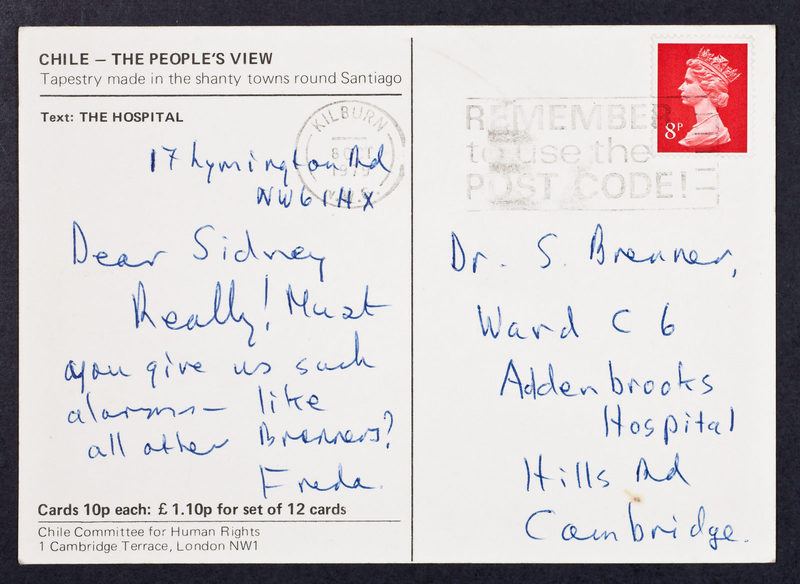 CHILE – THE PEOPLE'S VIEW
Tapestry made in the shanty towns round Santiago
Text: THE HOSPITAL
17 Lymington Rd
NW6 1HX
Dear Sidney
Really! Must
you give us such
alarms – like
all other Brenners?
Freda.
Cards 10p each: £1.10p for set of 12 cards
Chile Committee for Human Rights
1 Cambridge Terrace, London NW1
KILBURN
8 OCT
1979
REMEMBER
to use the
POST CODE!
8P
Dr. S. Brenner,
Ward C 6
Addenbrooks
Hospital
Hills Rd
Cambridge.